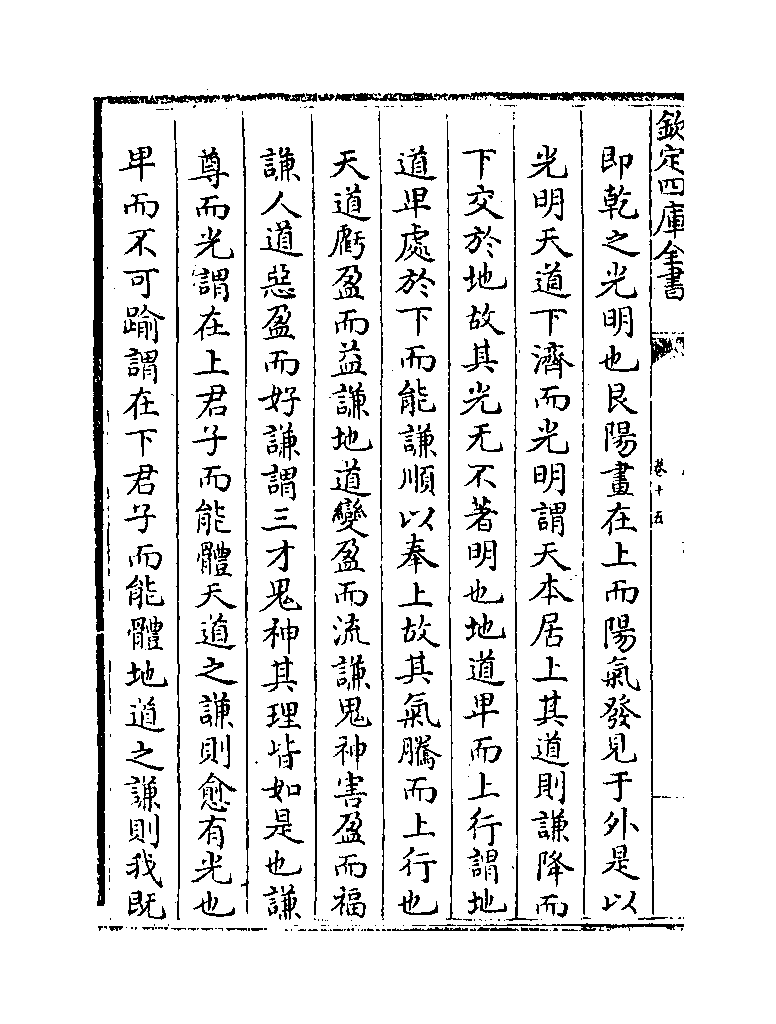 欽定四庫全書
卷十五
即乾之光明也艮陽畫在上而陽氣發見于外是以
光明天道下濟而光明謂天本居上其道則謙降而
下交於地故其光无不著明也地道卑而上行謂地
道卑處於下而能謙順以奉上故其氣騰而上行也
天道虧盈而益謙地道變盈而流謙鬼神害盈而福
謙人道惡盈而好謙謂三才鬼神其理皆如是也謙
尊而光謂在上君子而能體天道之謙則愈有光也
卑而不可踰謂在下君子而能體地道之謙則我既